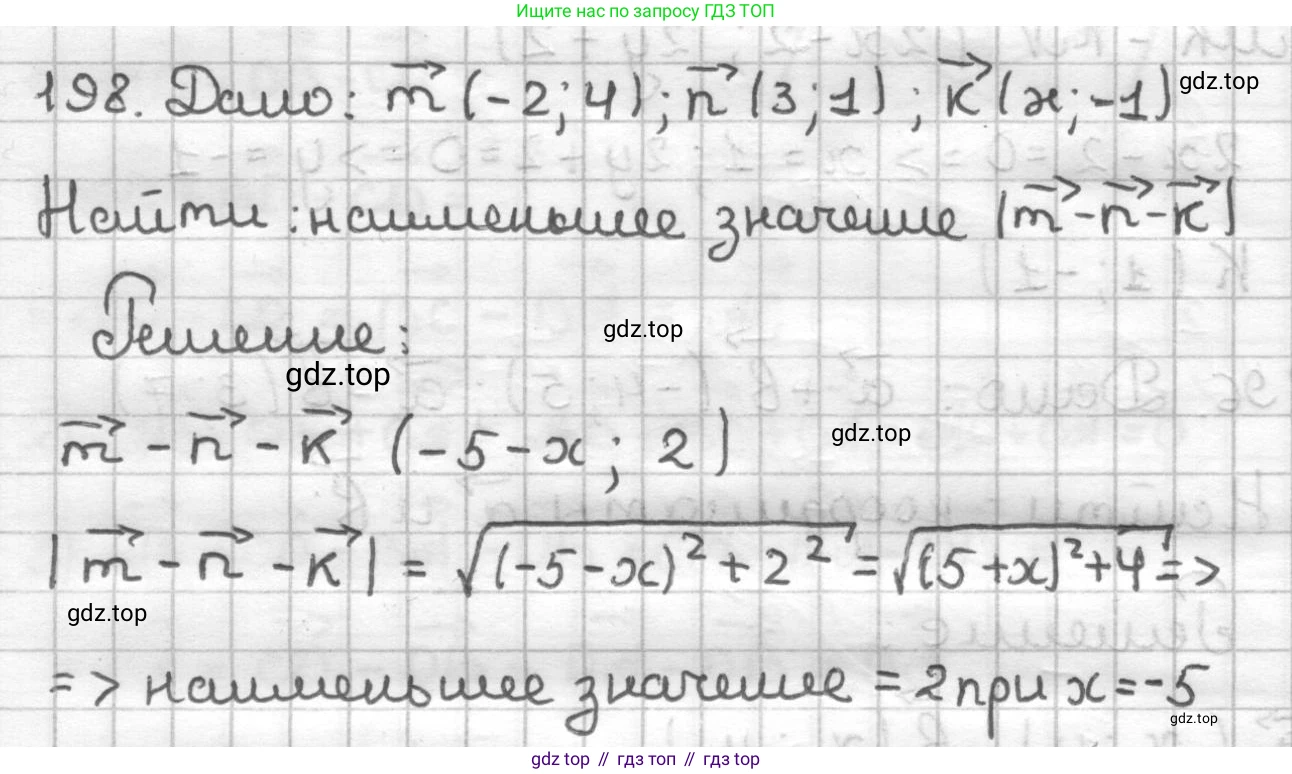 Ищите нас по запросу ГДЗ ТОП
198. Дано: m⃗ (-2; 4); n⃗ (3; 1); k⃗ (x; -1) gdz.top
Найти: наименьшее значение |m⃗ - n⃗ - k⃗|
Решение:
gdz.top
gdz.top
m⃗ - n⃗ - k⃗ (-5 - x; 2)
gdz.top
|m⃗ - n⃗ - k⃗| = √((-5 - x)² + 2²) = √((5 + x)² + 4) =>
gdz.top
=> наименьшее значение = 2 при x = -5
gdz.top
gdz.top // гдз топ // gdz.top